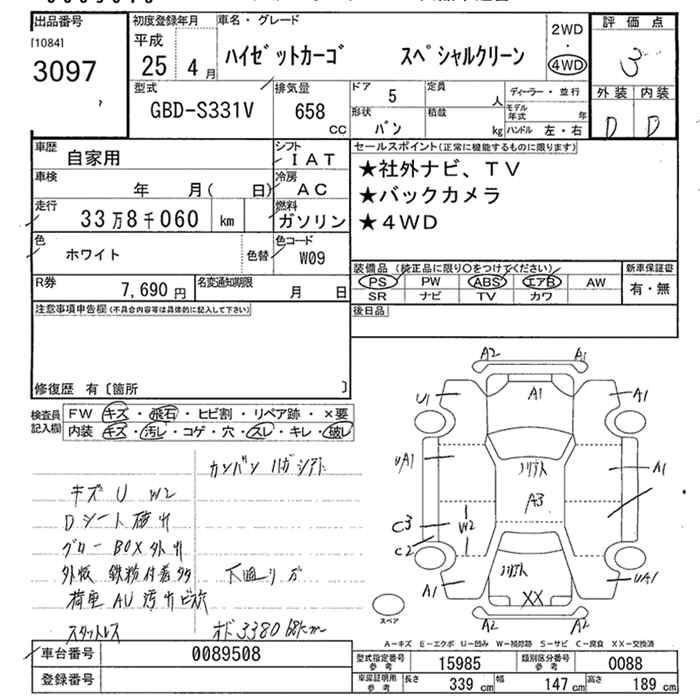 出品番号
[1084]
3097
初度登録年月
平成
25 4 月
車名・グレード
ハイゼットカーゴ スペシャルクリーン
2WD
・
4WD
評価点
3
外装 内装
D D
型式
GBD-S331V
排気量
658
CC
ドア 5
定員 人
形状 バン
積載 kg
ディーラー・並行
モデル年式 年
ハンドル 左・右
車歴
自家用
シフト
IAT
車検
年 月( 日)
冷房
AC
走行
33万8千060 km
燃料
ガソリン
色
ホワイト
色替
色コード
W09
R券
7,690 円
名変通知期限
月 日
セールスポイント(正常に機能するものに限ります)
★社外ナビ、TV
★バックカメラ
★4WD
装備品(純正品に限り○をつけてください)
PS PW ABS エアB AW
SR ナビ TV カワ
新車保証書
有・無
後日品
注意事項申告欄(不具合内容等は具体的に記入して下さい)
修復歴 有〔箇所 〕
検査員
記入欄
FW キズ・飛石・ヒビ割・リペア跡・×要
内装 キズ・汚レ・コゲ・穴・スレ・キレ・破レ
カンバン ハガシアト
キズ U W2
Dシート破れ
グローBOX外れ
外板 鉄粉付着多
下廻りサビ
荷室 AU 汚れ
スタットレス
A2 A1
U1 A1 A1
UA1 ノリアト A1
A3
C3 W2
C2
A1 ノリアト UA1
XX
A2 A2
スペア
A-キズ E-エクボ U-凹み W-補修跡 S-サビ C-腐食 XX-交換済
車台番号 0089508
登録番号
型式指定番号
参考
15985
類別区分番号
参考
0088
車庫証明用
参考
長さ 339 cm
幅 147 cm
高さ 189 cm